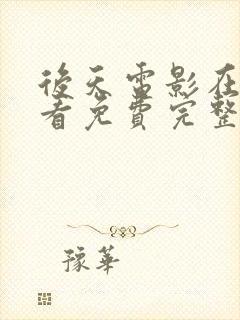 後天電影在
看免費完整
豫華